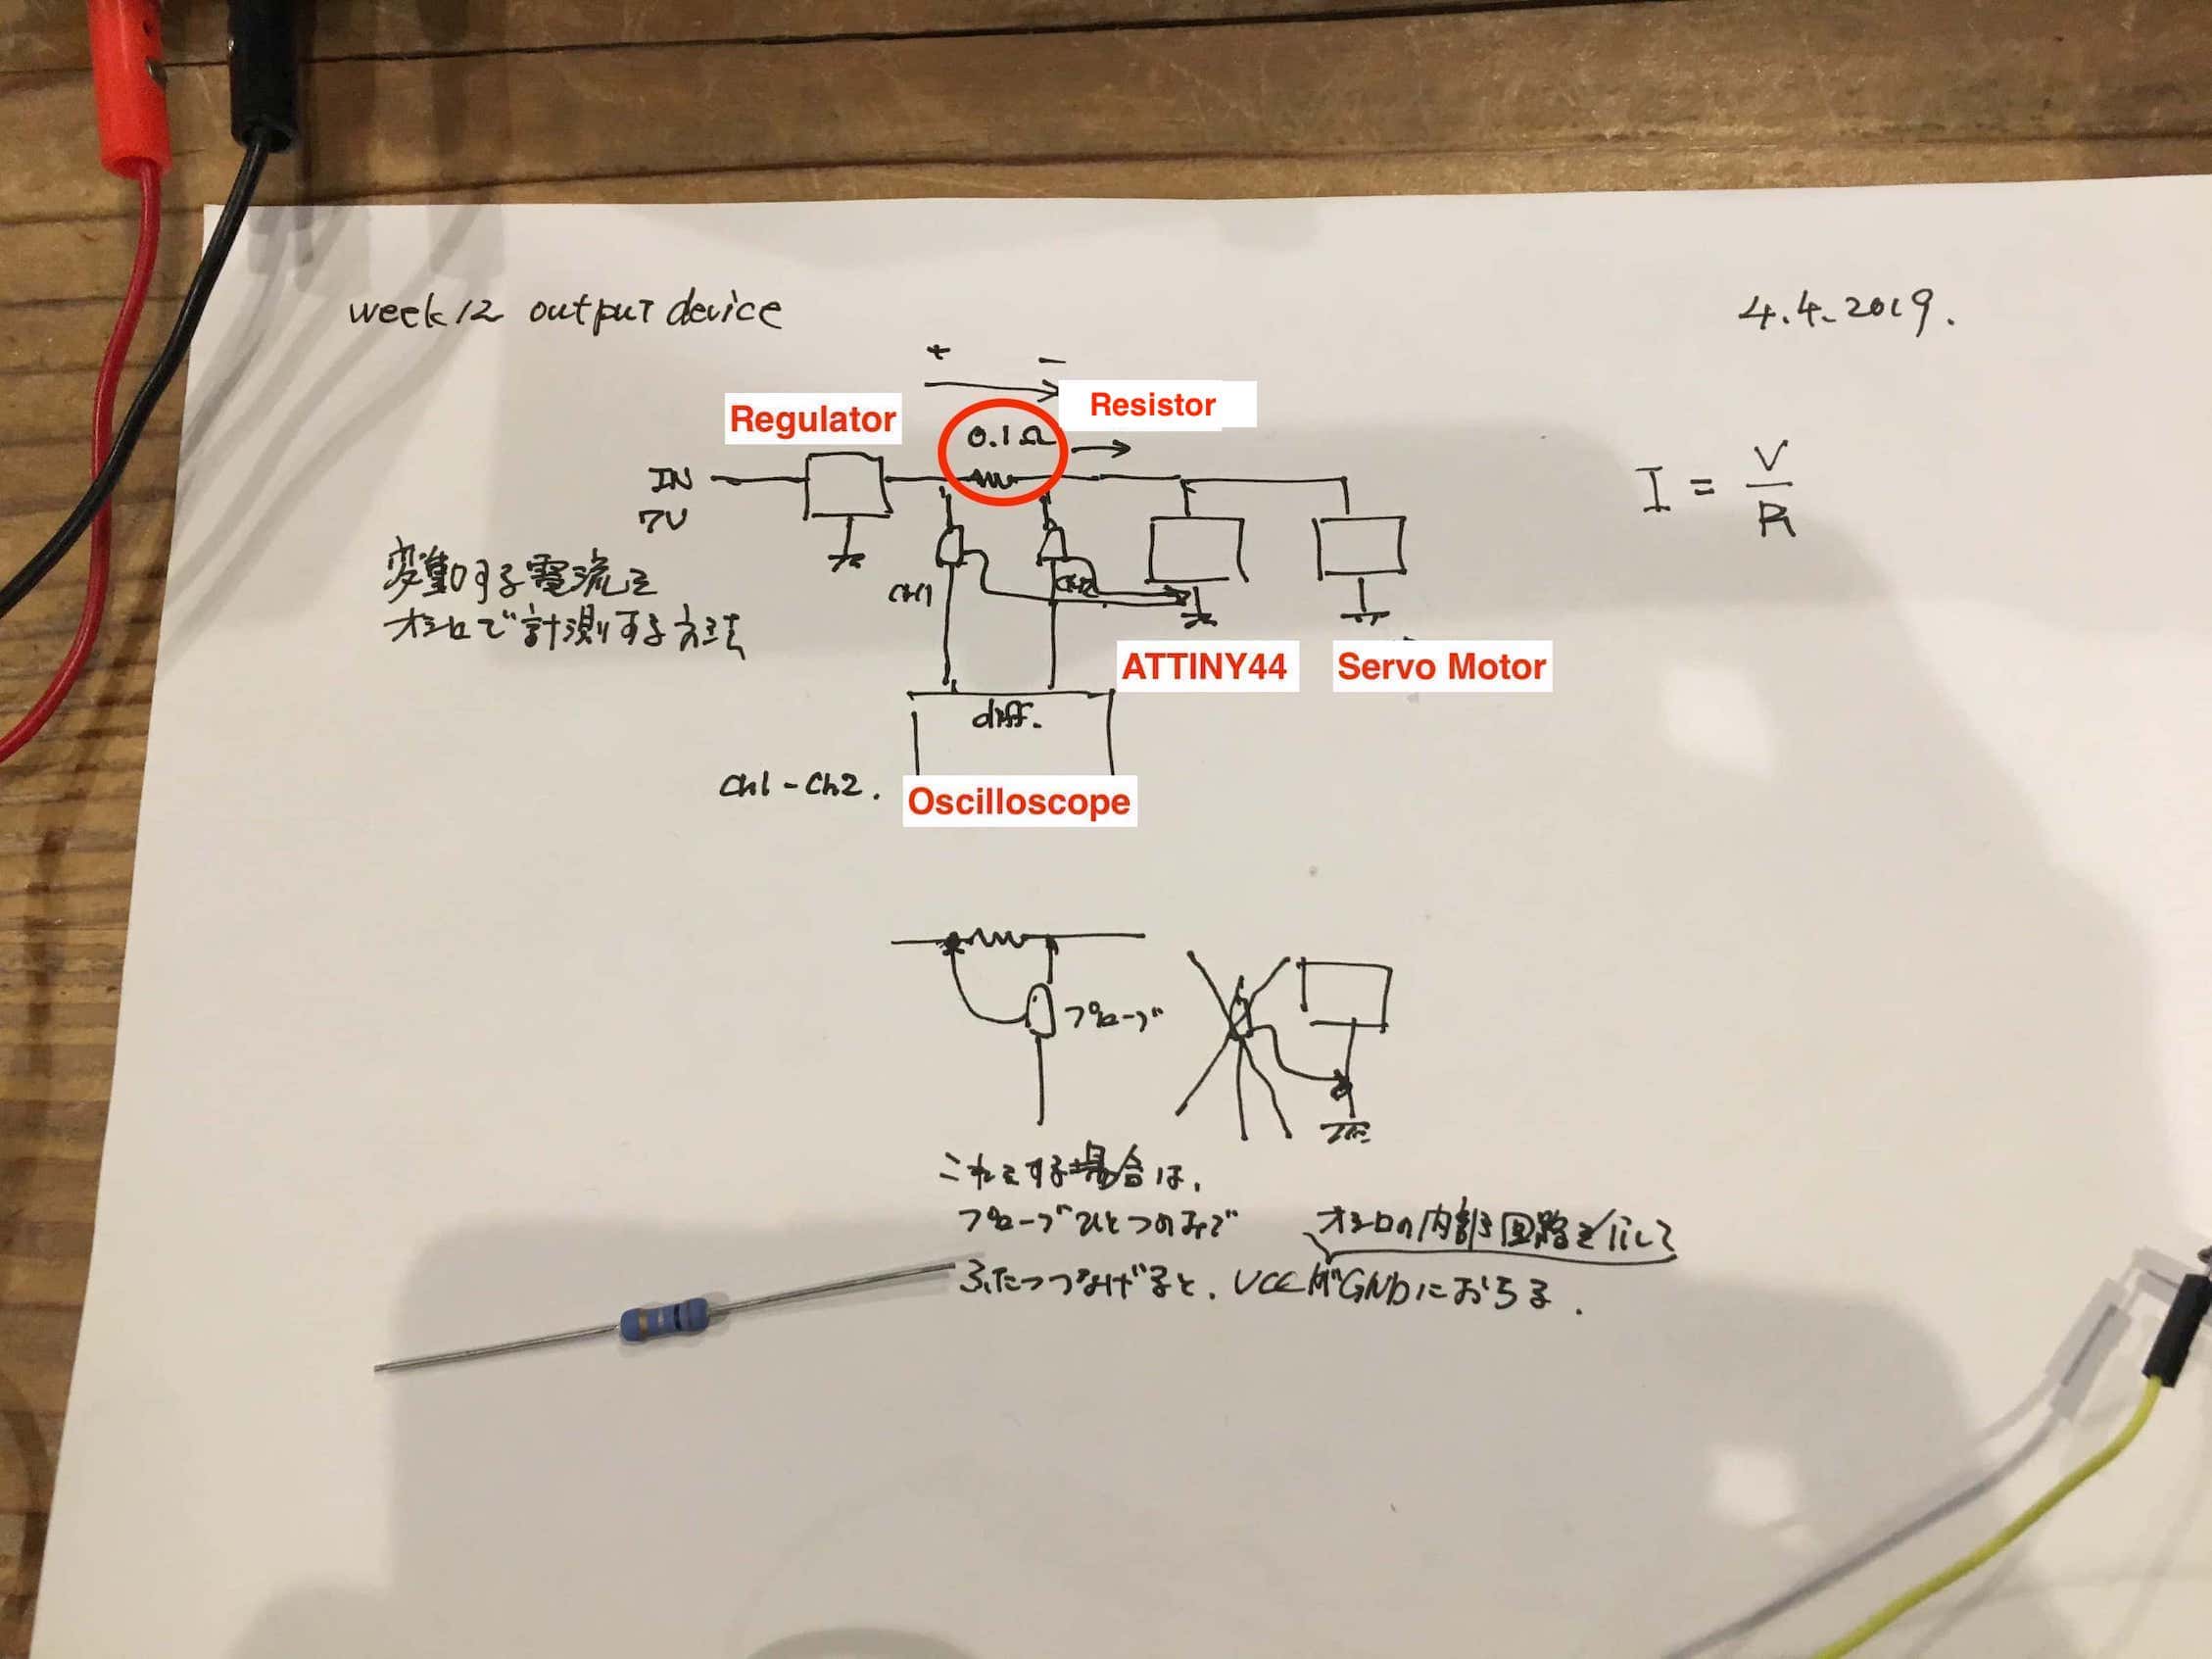 week12 output device
4.4.2019.
+ −
Regulator
Resistor
0.1Ω
IN
7V
I = V/R
変動する電流を
オシロで計測する方法
CH1
CH2
ATTINY44
Servo Motor
diff.
Ch1 - Ch2.
Oscilloscope
プローブ
これをする場合は、
プローブひとつのみで
オシロの内部回路を介して
ふたつつなげると、VCCがGNDにおちる.